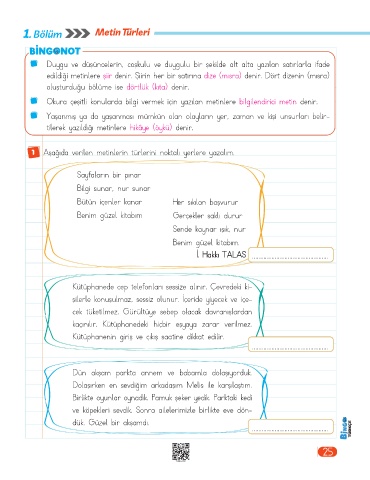 1. Bölüm
Metin Türleri
BİNGONOT
Duygu ve düşüncelerin, coşkulu ve duygulu bir şekilde alt alta yazılan satırlarla ifade
edildiği metinlere şiir denir. Şiirin her bir satırına dize (mısra) denir. Dört dizenin (mısra)
oluşturduğu bölüme ise dörtlük (kıta) denir.
Okura çeşitli konularda bilgi vermek için yazılan metinlere bilgilendirici metin denir.
Yaşanmış ya da yaşanması mümkün olan olayların yer, zaman ve kişi unsurları belir-
tilerek yazıldığı metinlere hikâye (öykü) denir.
1 Aşağıda verilen metinlerin türlerini noktalı yerlere yazalım.
Sayfaların bir pınar
Bilgi sunar, nur sunar
Bütün içenler kanar
Benim güzel kitabım
Her sıkılan başvurur
Gerçekler saklı durur
Sende kaynar ışık, nur
Benim güzel kitabım
İ. Hakkı TALAS
Kütüphanede cep telefonları sessize alınır. Çevredeki ki-
şilerle konuşulmaz, sessiz olunur. İçeride yiyecek ve içe-
cek tüketilmez. Gürültüye sebep olacak davranışlardan
kaçınılır. Kütüphanedeki hiçbir eşyaya zarar verilmez.
Kütüphanenin giriş ve çıkış saatine dikkat edilir.
Dün akşam parkta annem ve babamla dolaşıyorduk.
Dolaşırken en sevdiğim arkadaşım Melis ile karşılaştım.
Birlikte oyunlar oynadık. Pamuk şeker yedik. Parktaki kedi
ve köpekleri sevdik. Sonra ailelerimizle birlikte eve dön-
dük. Güzel bir akşamdı.
BİNGO
TÜRKÇE
25